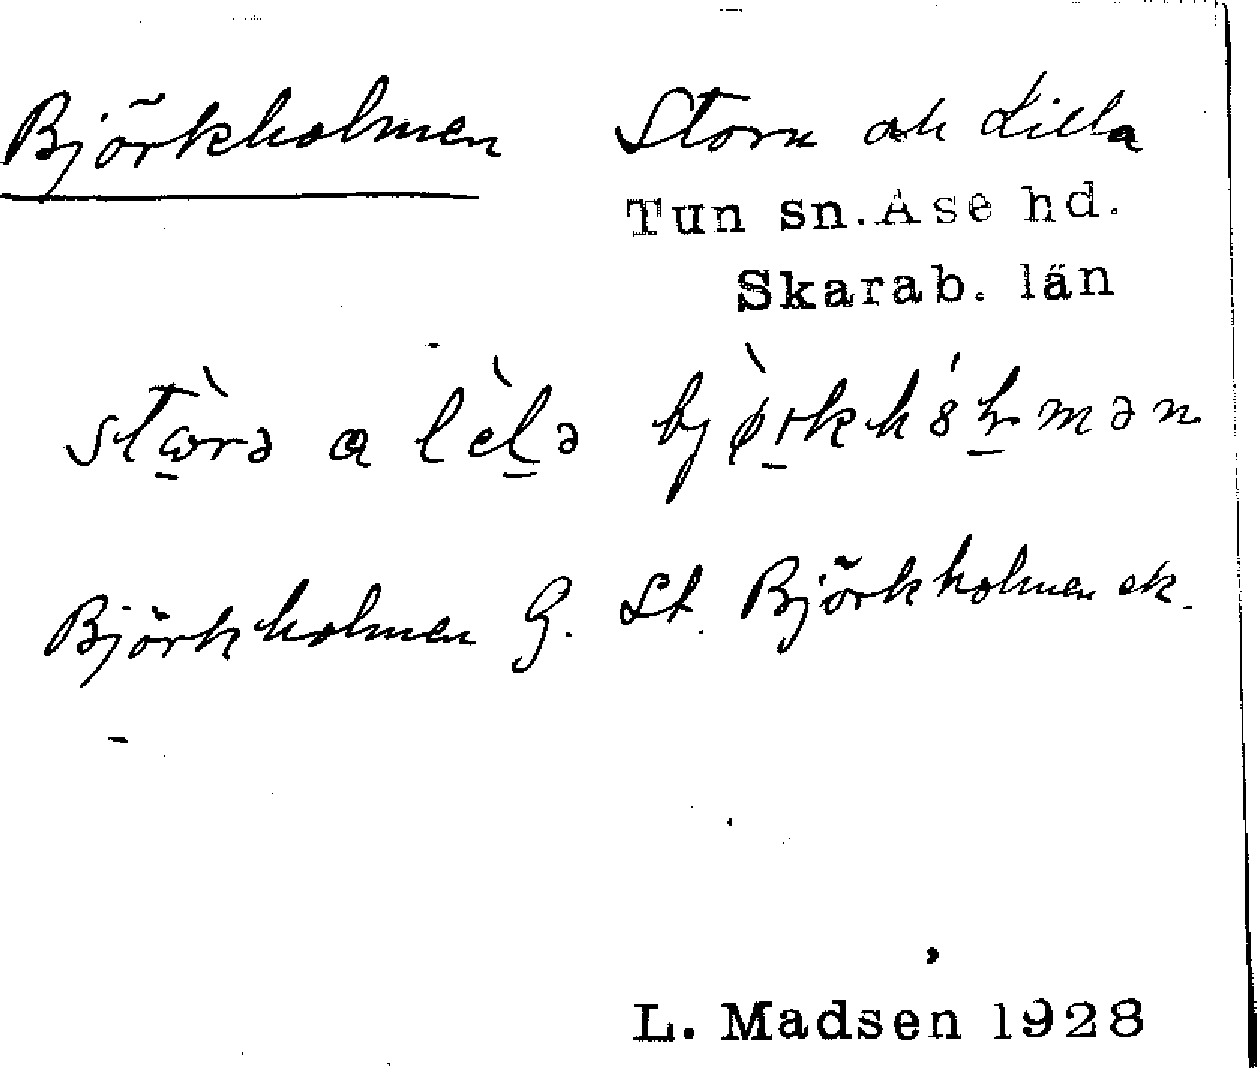 Björkholmen Stora och Lilla
Tun sn. Åse hd.
Skarab. län
stɷ̀rə a lèlə bjø̀rkhólmən
Björkholmen G. St. Björkholmen ek.
L. Madsen 1928